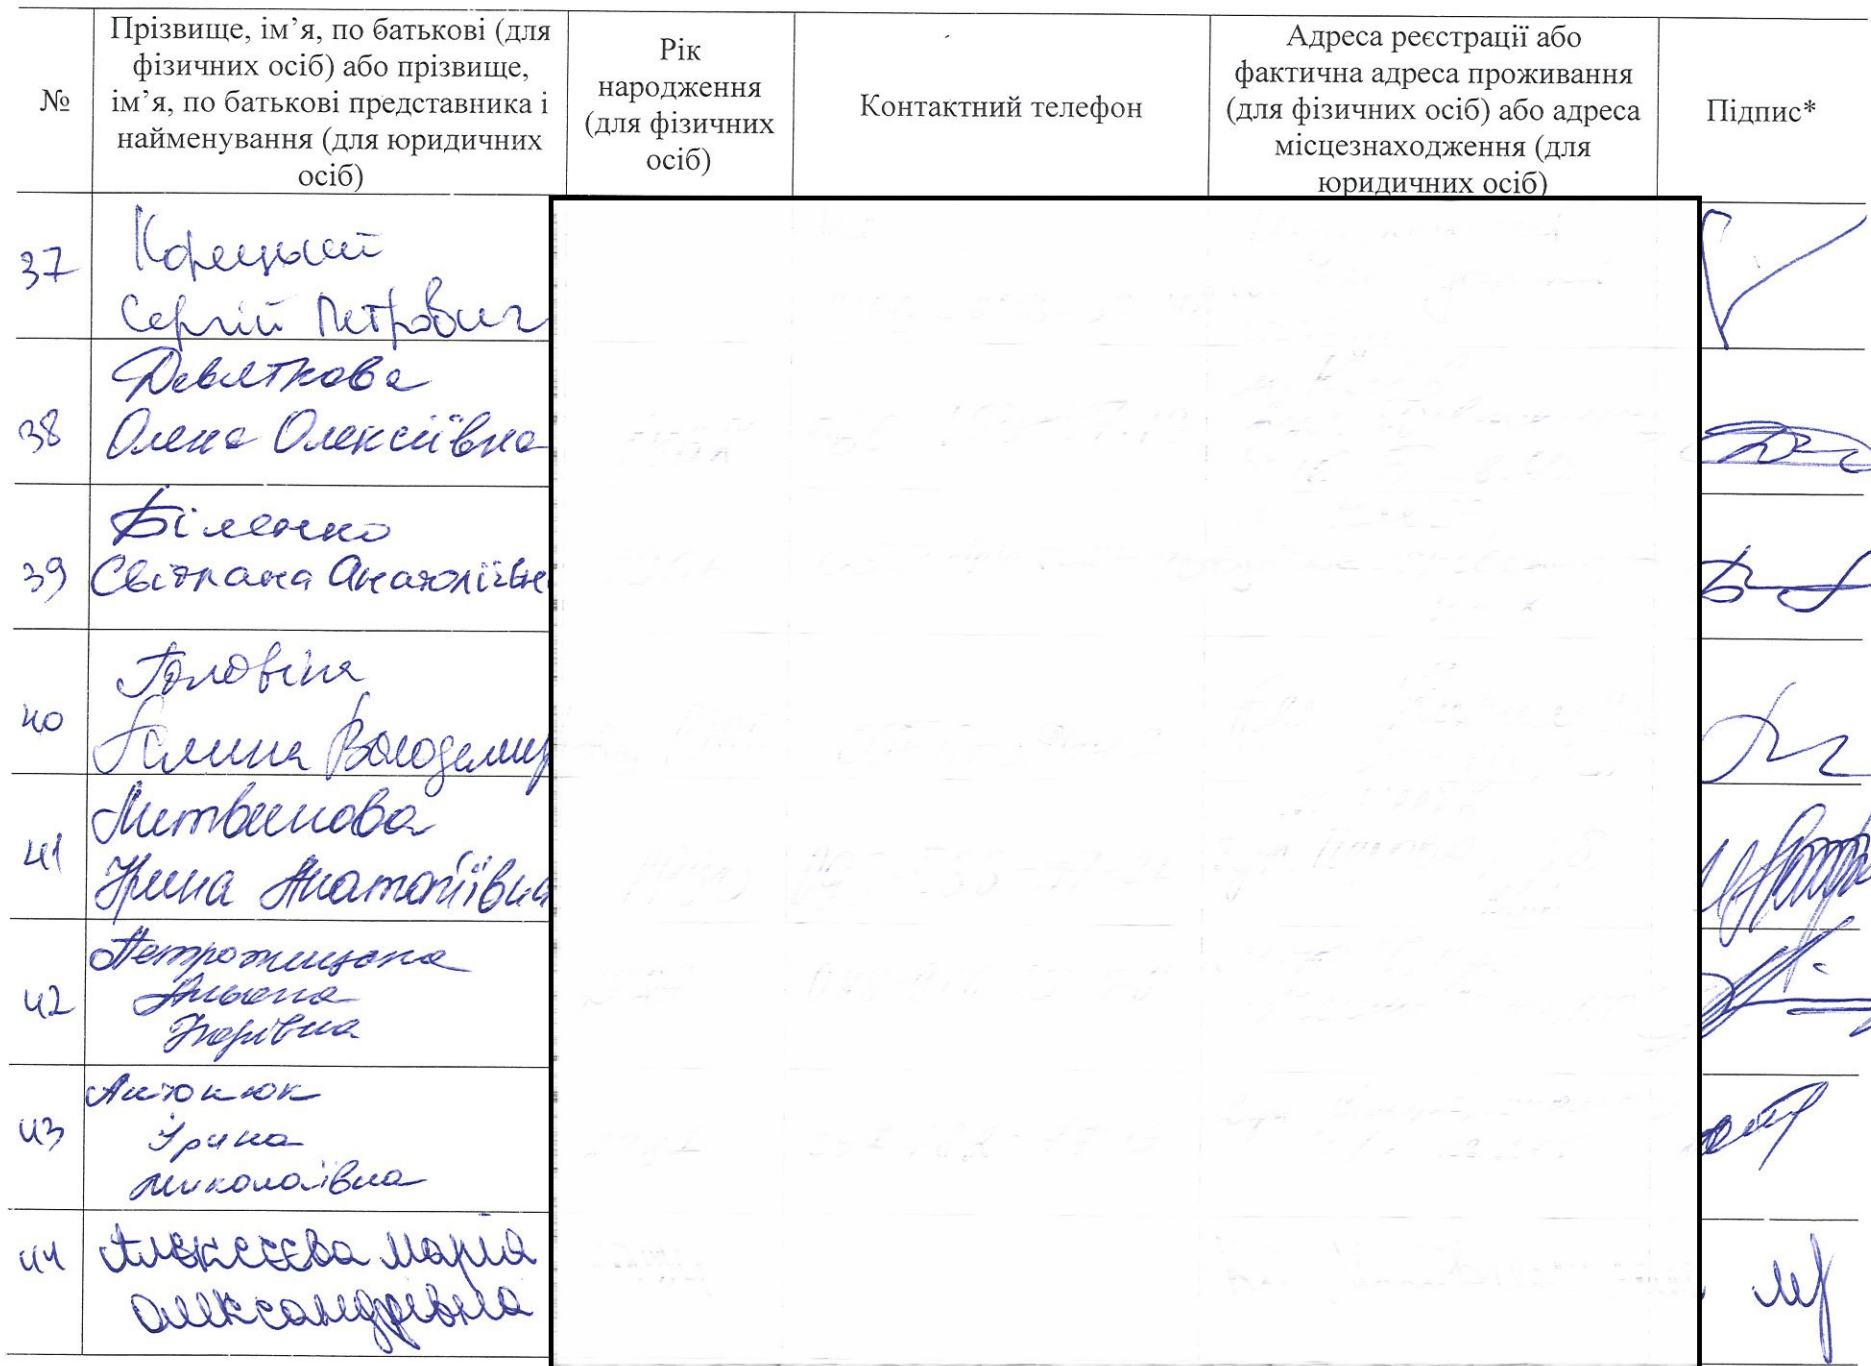 №
Прізвище, ім’я, по батькові (для
фізичних осіб) або прізвище,
ім’я, по батькові представника і
найменування (для юридичних
осіб)
Рік
народження
(для фізичних
осіб)
Контактний телефон
Адреса реєстрації або
фактична адреса проживання
(для фізичних осіб) або адреса
місцезнаходження (для
юридичних осіб)
Підпис*
37
Корецький
Сергій Петрович
38
Девяткова
Олена Олексіївна
39
Біленко
Світлана Анатоліївна
40
Головіна
Галина Володимир
41
Литвинова
Ірина Анатоліївна
42
Альона
Ігорівна
43
Антонюк
Ірина
Миколаївна
44
Алєксєєва Марія
Олександрівна